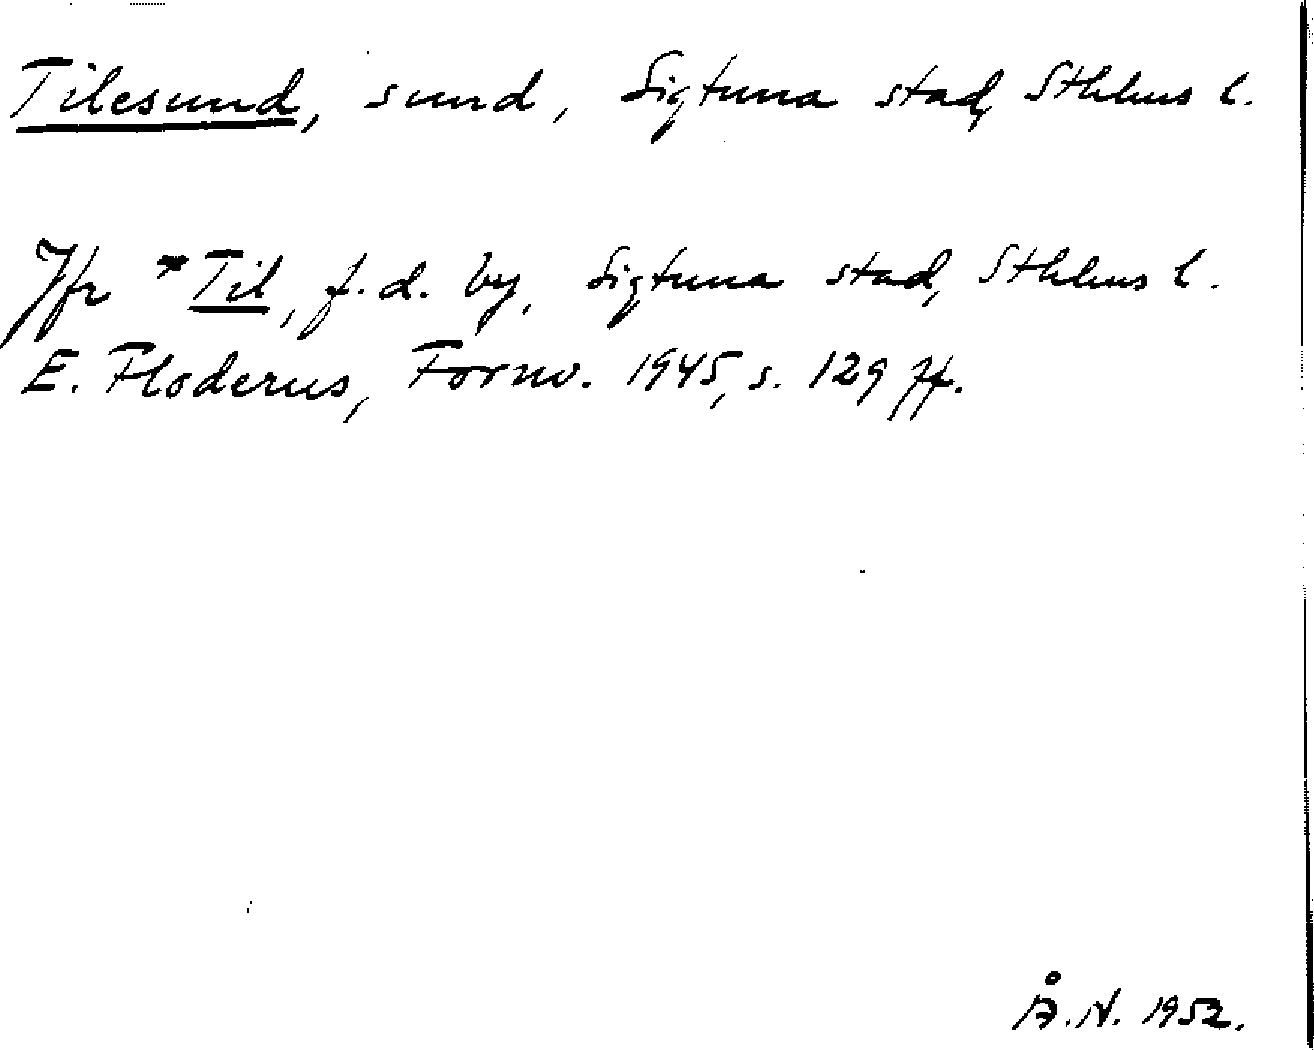 Tilesund, sund, Sigtuna stad, Sthlms l.
Jfr *Til, f.d. by, Sigtuna stad, Sthlms l.
E. Floderus, Fornv. 1945, s. 129 ff.
Å.N. 1952.